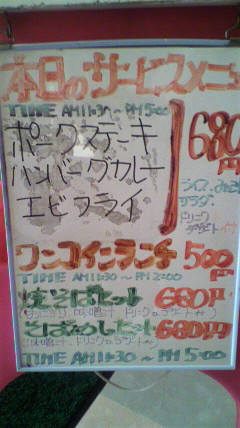 本日のサービスメニュー
TIME AM11:30~PM5:00
ポークステーキ
ハンバーグカレー
エビフライ
680円
ライス、みそ汁
サラダ、
ドリンク
デザート付
ワンコインランチ 500円
TIME AM11:30~PM2:00
焼そばセット 680円
(おにぎり、味噌汁、ドリンクorデザート付)
そばめしセット 680円
(味噌汁、ドリンクorデザート付)
TIME AM11:30~PM5:00